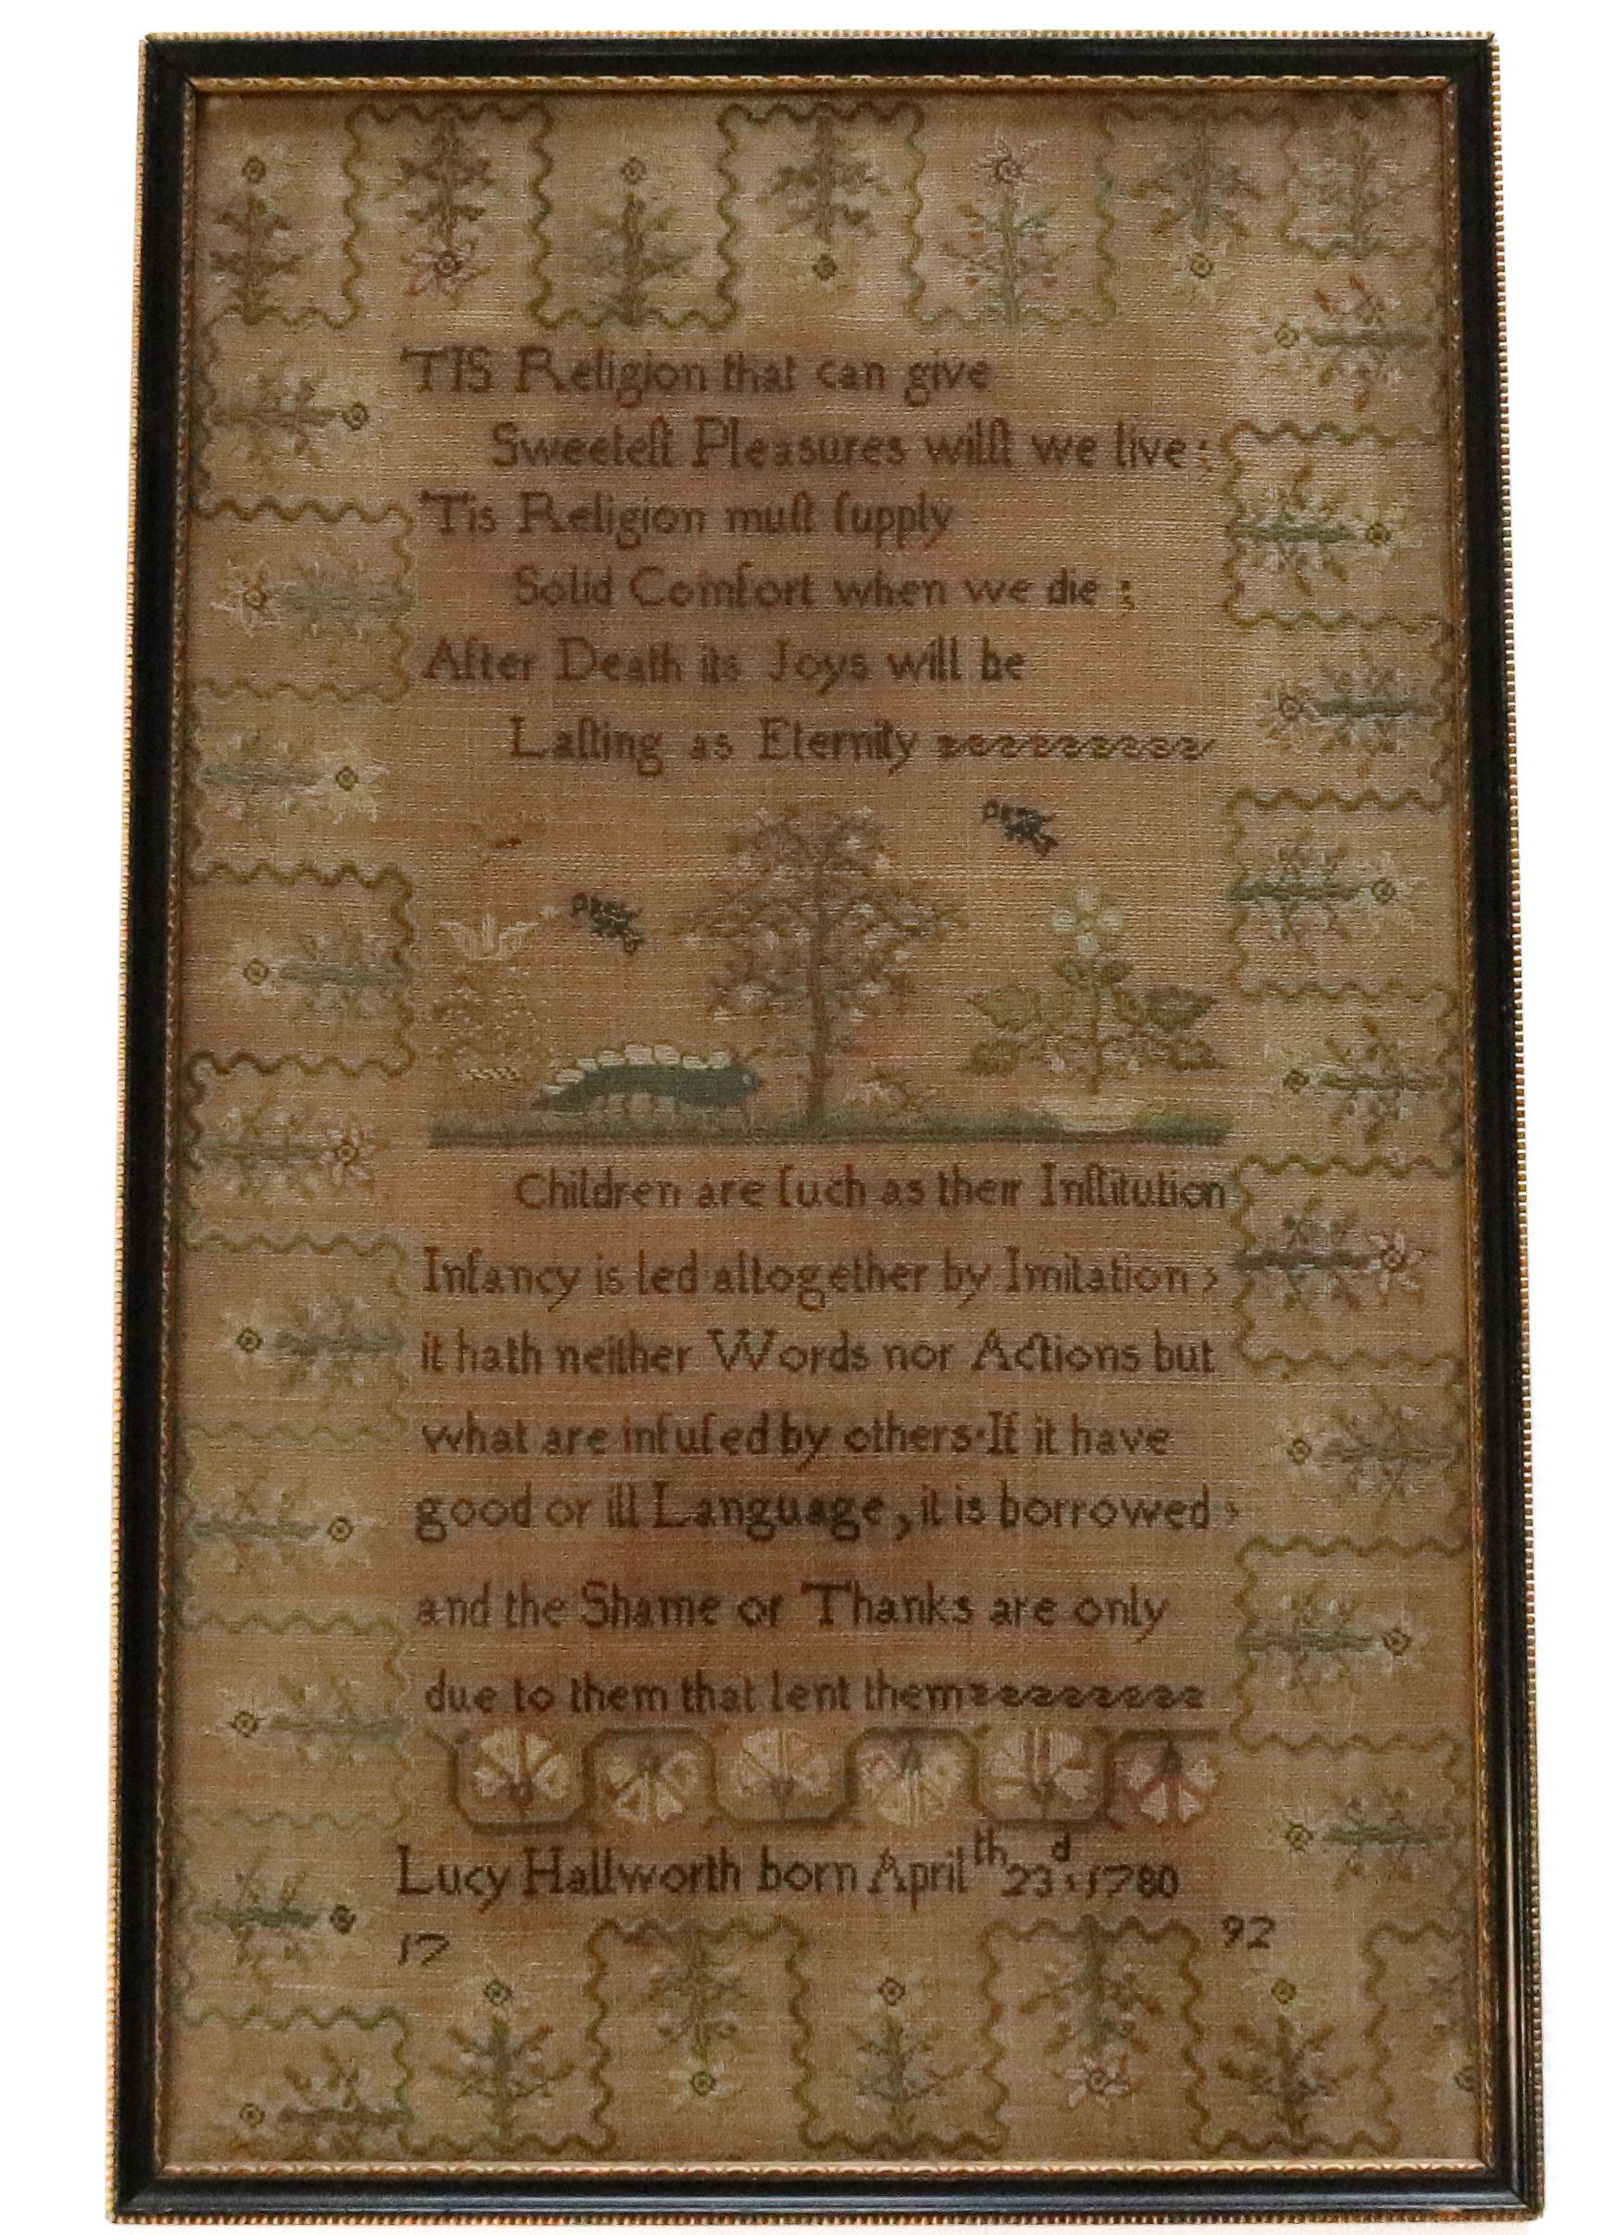 'TIS Religion that can give
Sweeteſt Pleasures wilſt we live;
'Tis Religion muſt ſupply
Solid Comfort when we die;
After Death its Joys will be
Laſting as Eternity
Children are ſuch as their Inſtitution
Infancy is led altogether by Imitation,
it hath neither Words nor Actions but
what are infuſed by others·If it have
good or ill Language, it is borrowed,
and the Shame or Thanks are only
due to them that lent them
Lucy Hallworth born April th 23d,1780
17 92